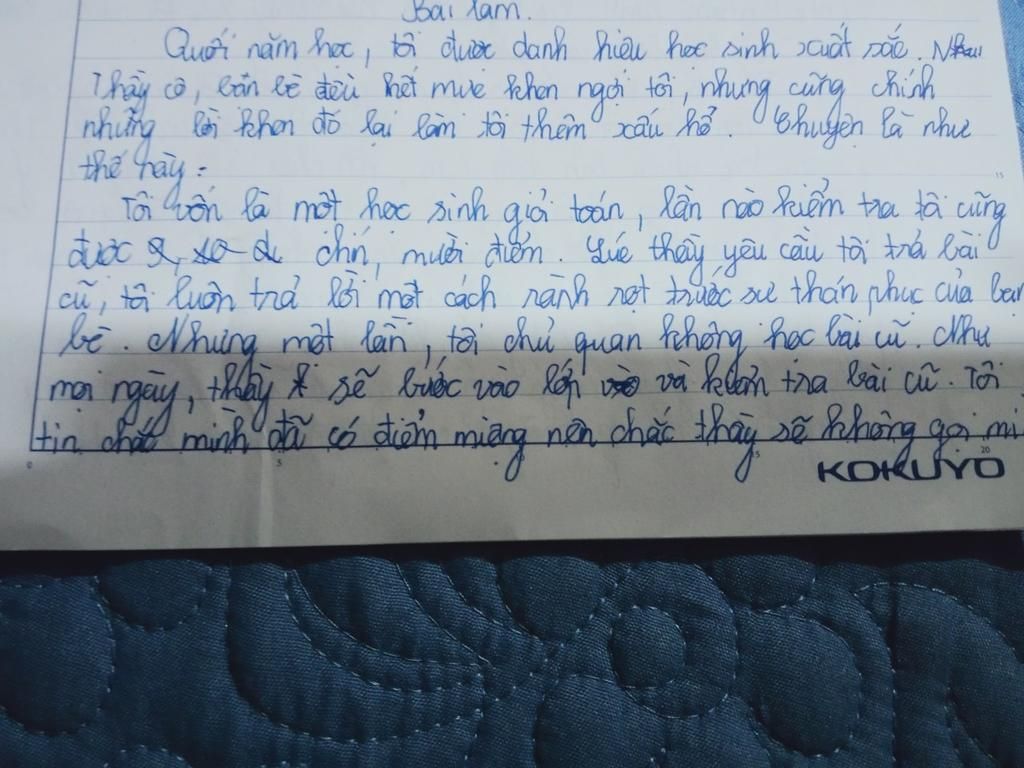 Bài làm.
Quối năm học, tôi được danh hiệu học sinh xuất sắc.
Thầy cô, bân bè đều hết mức khen ngợi tôi, nhưng cũng chính
những lời khen đó lại làm tôi thêm xấu hổ. Chuyện là như
thế này:
Tôi vốn là một học sinh giỏi toán, lần nào kiểm tra tôi cũng
được chín, mười điểm. Lúc thầy yêu cầu tôi trả bài
cũ, tôi luôn trả lời một cách rành rọt trước sự thán phục của bạn
bè. Nhưng một lần, tôi chủ quan không học bài cũ. Như
mọi ngày, thầy sẽ bước vào lớp và kiểm tra bài cũ. Tôi
tin chắc mình đã có điểm miệng nên chắc thầy sẽ không gọi mì
KOKUYO